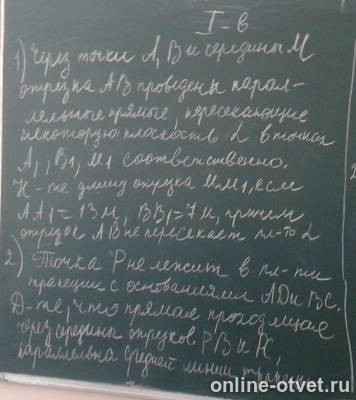 I-в
1) Через точки А, В и середины М
отрезка АВ проведены парал-
лельные прямые, пересекающие
некоторую плоскость α в точках
А1, В1, М1 соответственно.
Н-те длину отрезка ММ1, если
АА1 = 13м, ВВ1 = 7м, причем
отрезок АВ не пересекает пл-ть α
2) Точка Р не лежит в пл-ти
трапеции с основаниями АD и ВС.
Д-те, что прямая проходящая
через середины отрезков РВ и РС,
параллельна средней линии трапеции
online-otvet.ru